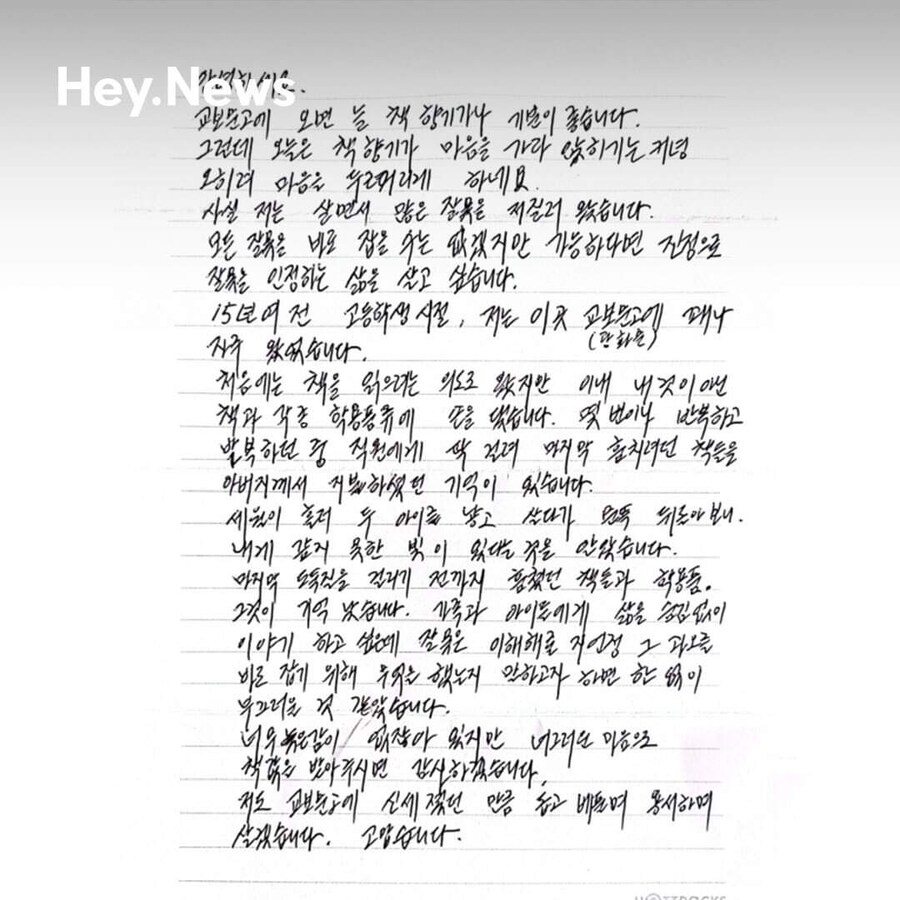 Hey.News
안녕하세요.
교보문고에 오면 늘 책 향기가나 기분이 좋습니다.
그런데 오늘은 책 향기가 마음을 가라 앉히기는 커녕
오히려 마음을 두르머리게 하네요.
사실 저는 살면서 많은 잘못을 저질러 왔습니다.
모든 잘못을 바로 잡을 수는 없겠지만 가능하다면 진정으로
잘못을 인정하는 삶을 살고 싶습니다.
15년 여 전 고등학생 시절, 저는 이곳 교보문고에 꽤나
(광화문)
자주 왔었습니다.
처음에는 책을 읽으려는 의도로 왔지만 이내 내 것이 아닌
책과 각종 학용품류에 손을 댔습니다. 몇 번이나 반복하고
반복하던 중 직원에게 딱 걸려 마지막 훔치려던 책들을
아버지께서 지불하셨던 기억이 있습니다.
세월이 흘러 두 아이를 낳고 살다가 문득 뒤돌아 보니.
내게 갚지 못한 빚이 있다는 것을 알았습니다.
마지막 도둑질을 걸리기 전까지 훔쳤던 책들과 학용품.
그것이 기억 났습니다. 가족과 아이들에게 삶을 숨김없이
이야기 하고 싶은데 잘못은 이해해줄 지언정 그 과오를
바로 잡기 위해 무엇을 했는지 말하고자 하면 한 없이
부끄러울 것 같았습니다.
너무 늦은감이 없잖아 있지만 너그러운 마음으로
책값을 받아주시면 감사하겠습니다.
저도 교보문고에 신세 졌던 만큼 돕고 베풀며 용서하며
살겠습니다. 고맙습니다.
HOTTRACKS